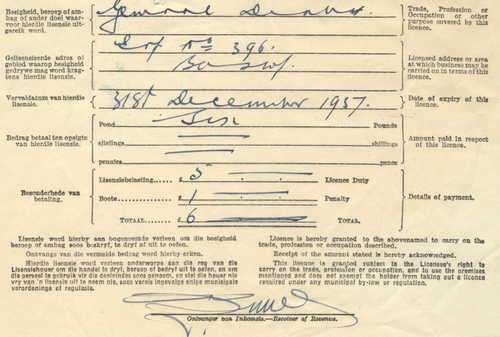 Besigheid, beroep of am-
bag of ander doel waar-
voor hierdie lisensie uit-
gereik word.
General Dealer
Trade, Profession or
Occupation or other
purpose covered by this
licence.
Gelisensieerde adres of
gebied waarop besigheid
gedrywe mag word krag-
tens hierdie lisensie.
Erf No 396.
Licensed address or area
at which business may be
carried on in terms of this
licence.
Vervaldatum van hierdie
lisensie.
31st December 1957.
Date of expiry of this
licence.
Bedrag betaal ten opsigte
van hierdie lisensie.
Pond Six Pounds
sjielings shillings
pennies pence
Amount paid in respect
of this licence.
Besonderhede van
betaling.
Lisensiebelasting £ 5 Licence Duty
Boete £ 1 Penalty
TOTAAL £ 6 TOTAL.
Details of payment.
Lisensie word hierby aan bogenoemde verleen om die besigheid
beroep of ambag soos bostaat, te dryf of uit te oefen.
Ontvangs van die vermelde bedrag word hierby erken.
Hierdie lisensie word verleen onderworpe aan die reg van die
Lisensiehouer om die handel te dryf, beroep of bedryf uit te oefen, en om
die perseel te gebruik vir die doeleindes soos genoem, en stel die houer nie
vry van 'n lisensie uit te neem nie, soos vereis ingevolge enige munisipale
verordenings of regulasie.
Licence is hereby granted to the abovenamed to carry on the
trade, profession or occupation described.
Receipt of the amount stated is hereby acknowledged.
This licence is granted subject to the Licensee's right to
carry on the trade, profession or occupation, and to use the premises
mentioned and does not exempt the holder from taking out a licence
required under any municipal by-law or regulation.
Ontvanger van Inkomste.—Receiver of Revenue.